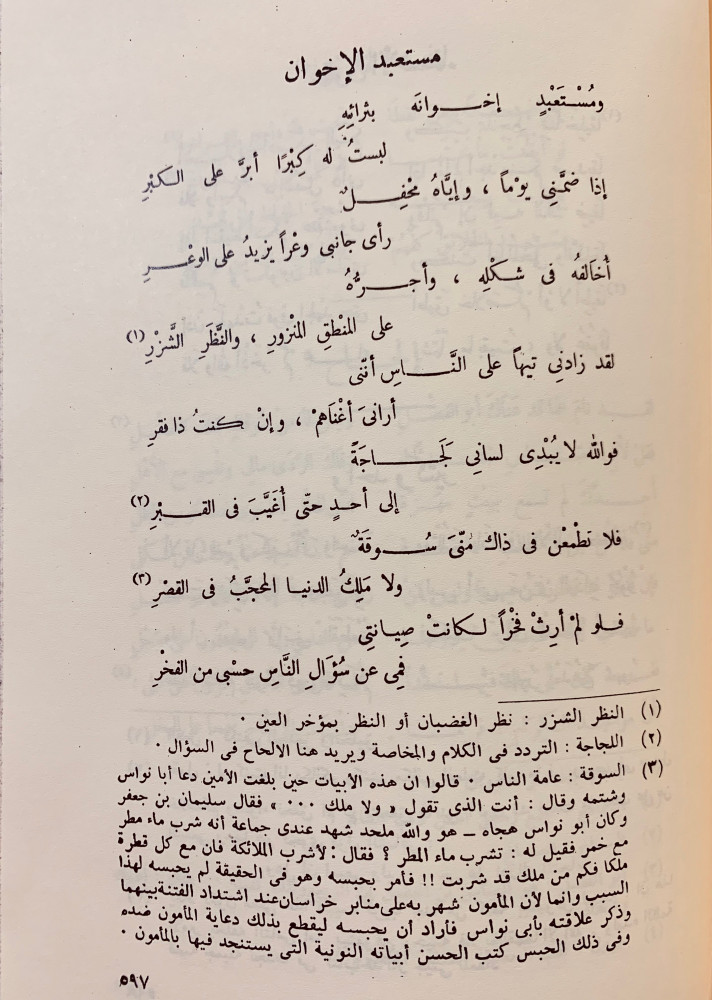 مستعبد الإخوان
ومُسْتَعْبِدٍ إخـــوانَه بثرائِهِ
لبستُ له كِبْرًا أبرَّ على الكبْرِ
إذا ضمَّنِي يوْماً ، وإيَّاهُ محْفِـــلٌ
رأى جانبى وعْراً يزيدُ على الوعْـــرِ
أُخَالفهُ فى شكْلِه ، وأجـــرُّهُ
على المنْطقِ المنْزورِ ، والنَّظَرِ الشَّزْرِ (١)
لقد زادنِي تيهاً على النَّـــاسِ أنّنى
أرانىَ أغْنَاهمْ ، وإنْ كنتُ ذا فقرِ
فوالله لا يُبْدِى لسانِي لَجَـــاجَةً
إلى أحدٍ حتّى أُغَيَّبَ فى القـــبْرِ (٢)
فلا تطْمعْن فى ذاك منّىَ سُـــوقَةٌ
ولا مَلِكُ الدنيا المحجَّبُ فى القصْرِ (٣)
فـلو لمْ أرِثْ فخْراً لكانتْ صِيانتِي
فمِى عن سُؤَالِ النَّاسِ حسْبى من الفخْرِ
(١) النظر الشزر : نظر الغضبان أو النظر بمؤخر العين ٠
(٢) اللجاجة : التردد فى الكلام والمخاصة ويريد هنا الالحاح فى السؤال ٠
(٣) السوقة : عامة الناس ٠ قالوا ان هذه الأبيات حين بلغت الأمين دعا أبا نواس
وشتمه وقال : أنت الذى تقول « ولا ملك ٠٠٠ » فقال سليمان بن جعفر
وكان أبو نواس هجاه ــ هو والله ملحد شهد عندى جماعة أنه شرب ماء مطر
مع خمر فقيل له : تشرب ماء المطر ؟ فقال : لأشرب الملائكة فان مع كل قطرة
ملكا فكم من ملك قد شربت !! فأمر بحبسه وهو فى الحقيقة لم يحبسه لهذا
السبب وانما لأن المأمون شهر به على منابر خراسان عند اشتداد الفتنة بينهما
وذكر علاقته بأبى نواس فأراد أن يحبسه ليقطع بذلك دعاية المأمون ضده
وفى ذلك الحبس كتب الحسن أبياته النونية التى يستنجد فيها بالمأمون ٠
٥٩٧